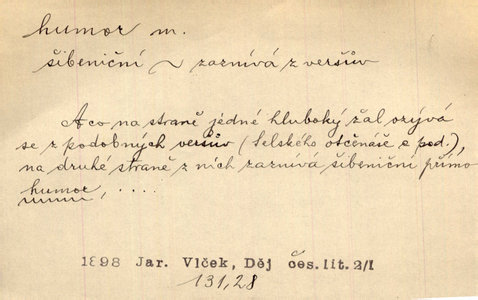 humor m.
šibeniční ~ zaznívá z veršův
A co na straně jedné hluboký žal ozývá
se z podobných veršův (Selského otčenáše a pod.),
na druhé straně z nich zaznívá šibeniční přímo
humor, ....
1898 Jar. Vlček, Děj čes. lit. 2/I
131,28